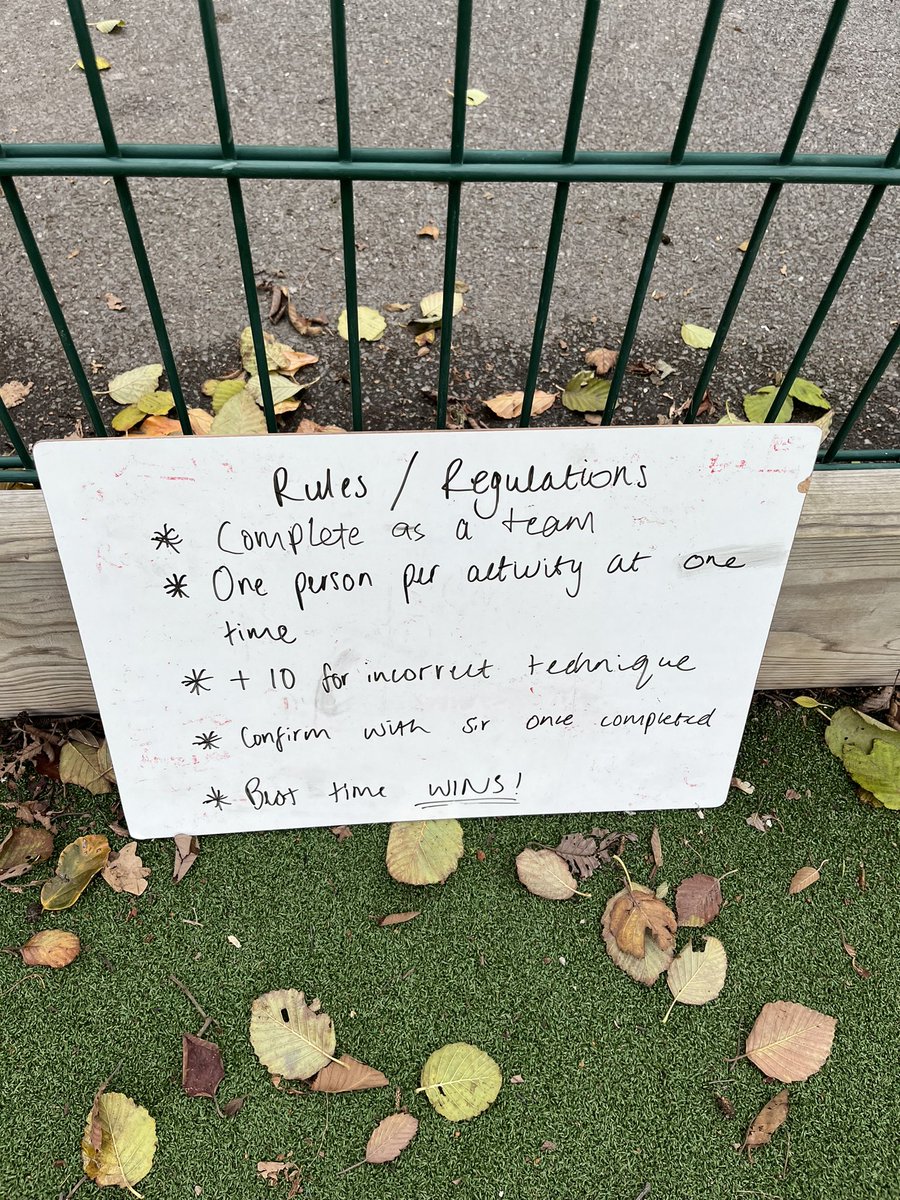 Rules / Regulations
* Complete as a team
* One person per activity at one
time
* + 10 for incorrect technique
* Confirm with sir once completed
* Best time WINS!